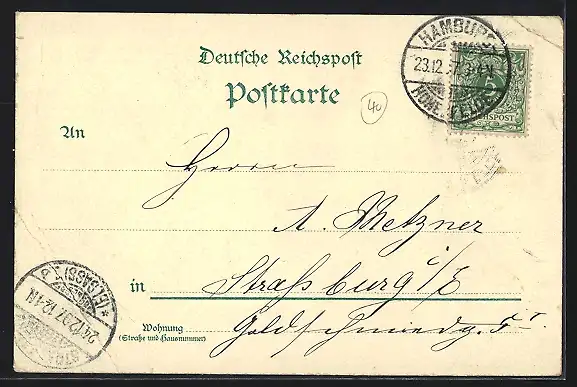 HAMBURG
23.12.97. 3-4 N
HOHENFELDE
REICHSPOST
Deutsche Reichspost
Postkarte
40
An
Herrn
A. Metzner
in Straßburg i/E
Wohnung
(Straße und Hausnummer)
Goldschmiedg.
(ELSASS)
24.12.97. 12-1N